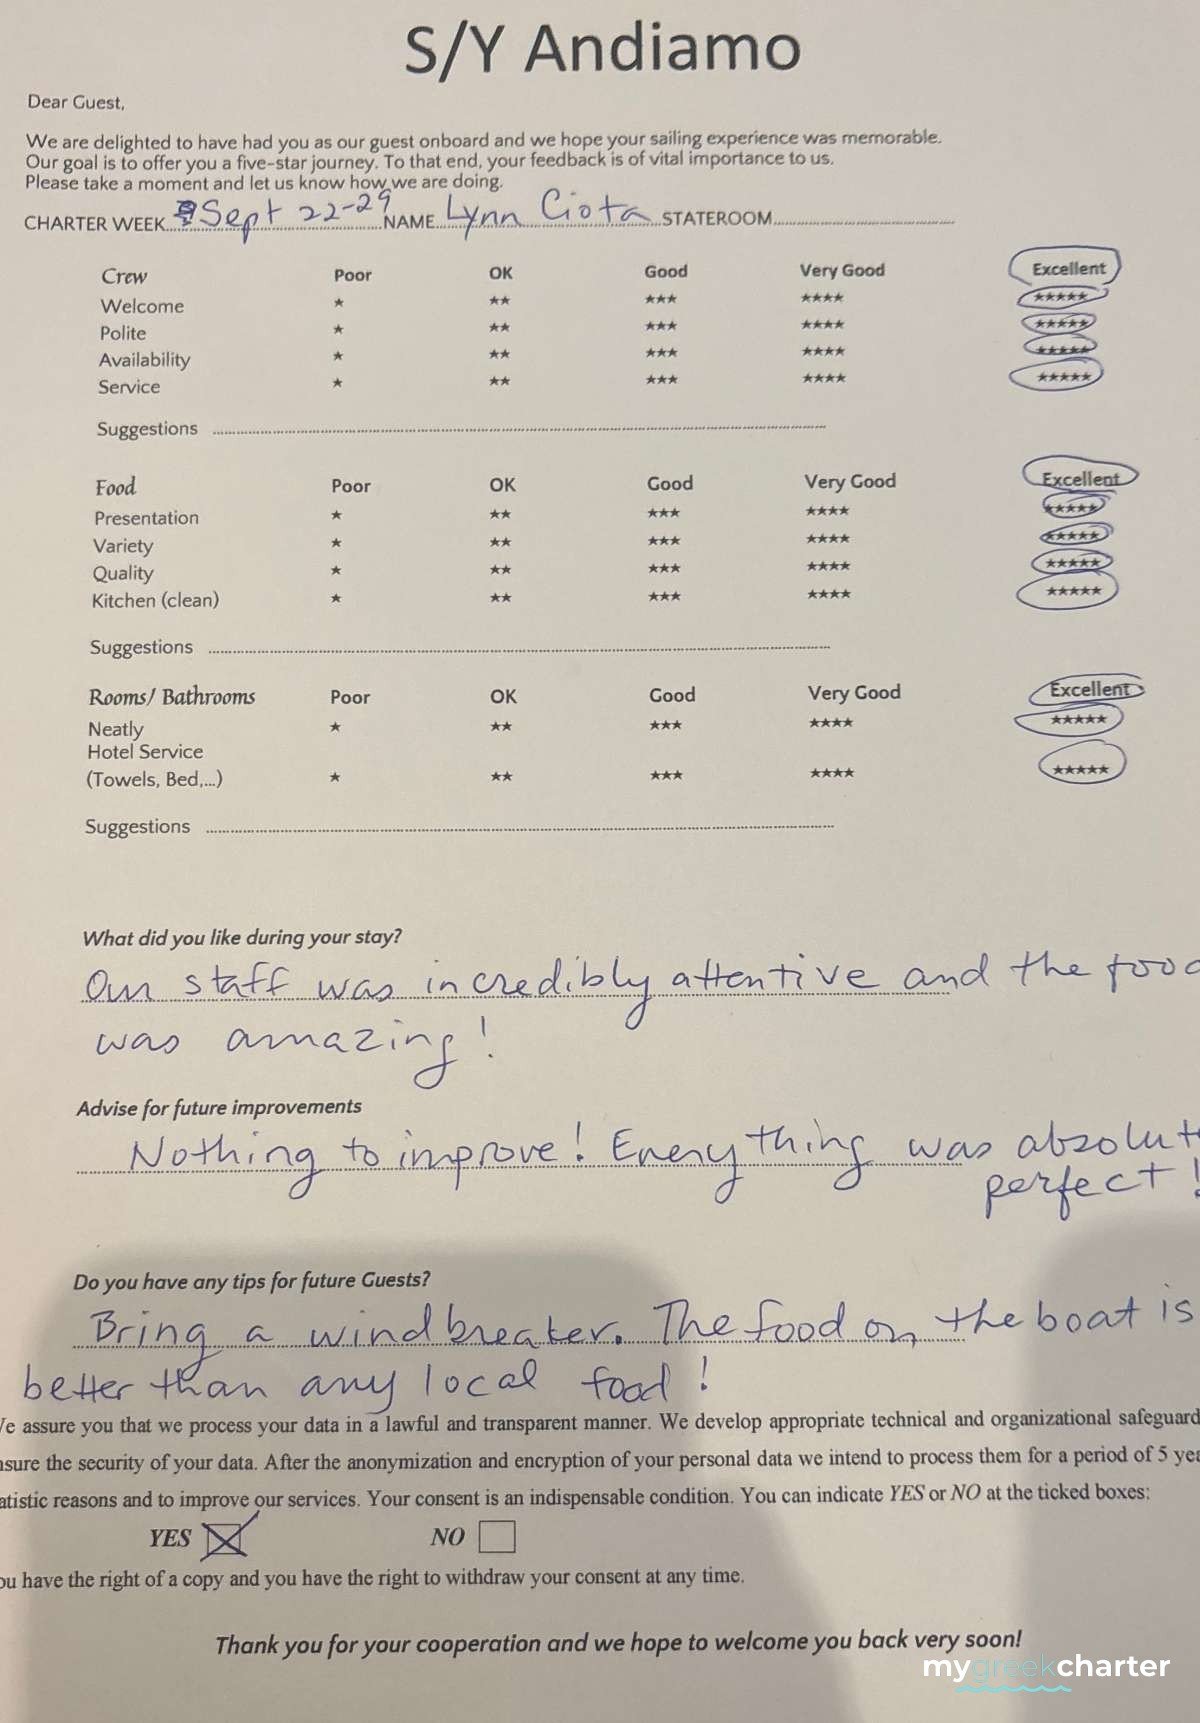 S/Y Andiamo
Dear Guest,
We are delighted to have had you as our guest onboard and we hope your sailing experience was memorable.
Our goal is to offer you a five-star journey. To that end, your feedback is of vital importance to us.
Please take a moment and let us know how we are doing.
CHARTER WEEK Sept 22-29 NAME Lynn Ciota STATEROOM
Crew Poor OK Good Very Good Excellent
Welcome ★ ★★ ★★★ ★★★★ ★★★★★
Polite ★ ★★ ★★★ ★★★★ ★★★★★
Availability ★ ★★ ★★★ ★★★★ ★★★★★
Service ★ ★★ ★★★ ★★★★ ★★★★★
Suggestions
Food Poor OK Good Very Good Excellent
Presentation ★ ★★ ★★★ ★★★★ ★★★★★
Variety ★ ★★ ★★★ ★★★★ ★★★★★
Quality ★ ★★ ★★★ ★★★★ ★★★★★
Kitchen (clean) ★ ★★ ★★★ ★★★★ ★★★★★
Suggestions
Rooms/ Bathrooms Poor OK Good Very Good Excellent
Neatly ★ ★★ ★★★ ★★★★ ★★★★★
Hotel Service
(Towels, Bed,...) ★ ★★ ★★★ ★★★★ ★★★★★
Suggestions
What did you like during your stay?
Our staff was incredibly attentive and the food
was amazing!
Advise for future improvements
Nothing to improve! Everything was absolut
perfect!
Do you have any tips for future Guests?
Bring a windbreaker. The food on the boat is
better than any local food!
We assure you that we process your data in a lawful and transparent manner. We develop appropriate technical and organizational safeguard
nsure the security of your data. After the anonymization and encryption of your personal data we intend to process them for a period of 5 yea
atistic reasons and to improve our services. Your consent is an indispensable condition. You can indicate YES or NO at the ticked boxes:
YES NO
ou have the right of a copy and you have the right to withdraw your consent at any time.
Thank you for your cooperation and we hope to welcome you back very soon!
mygreekcharter